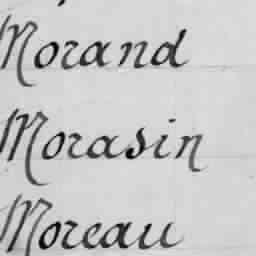 Morand
Morasin
Moreau